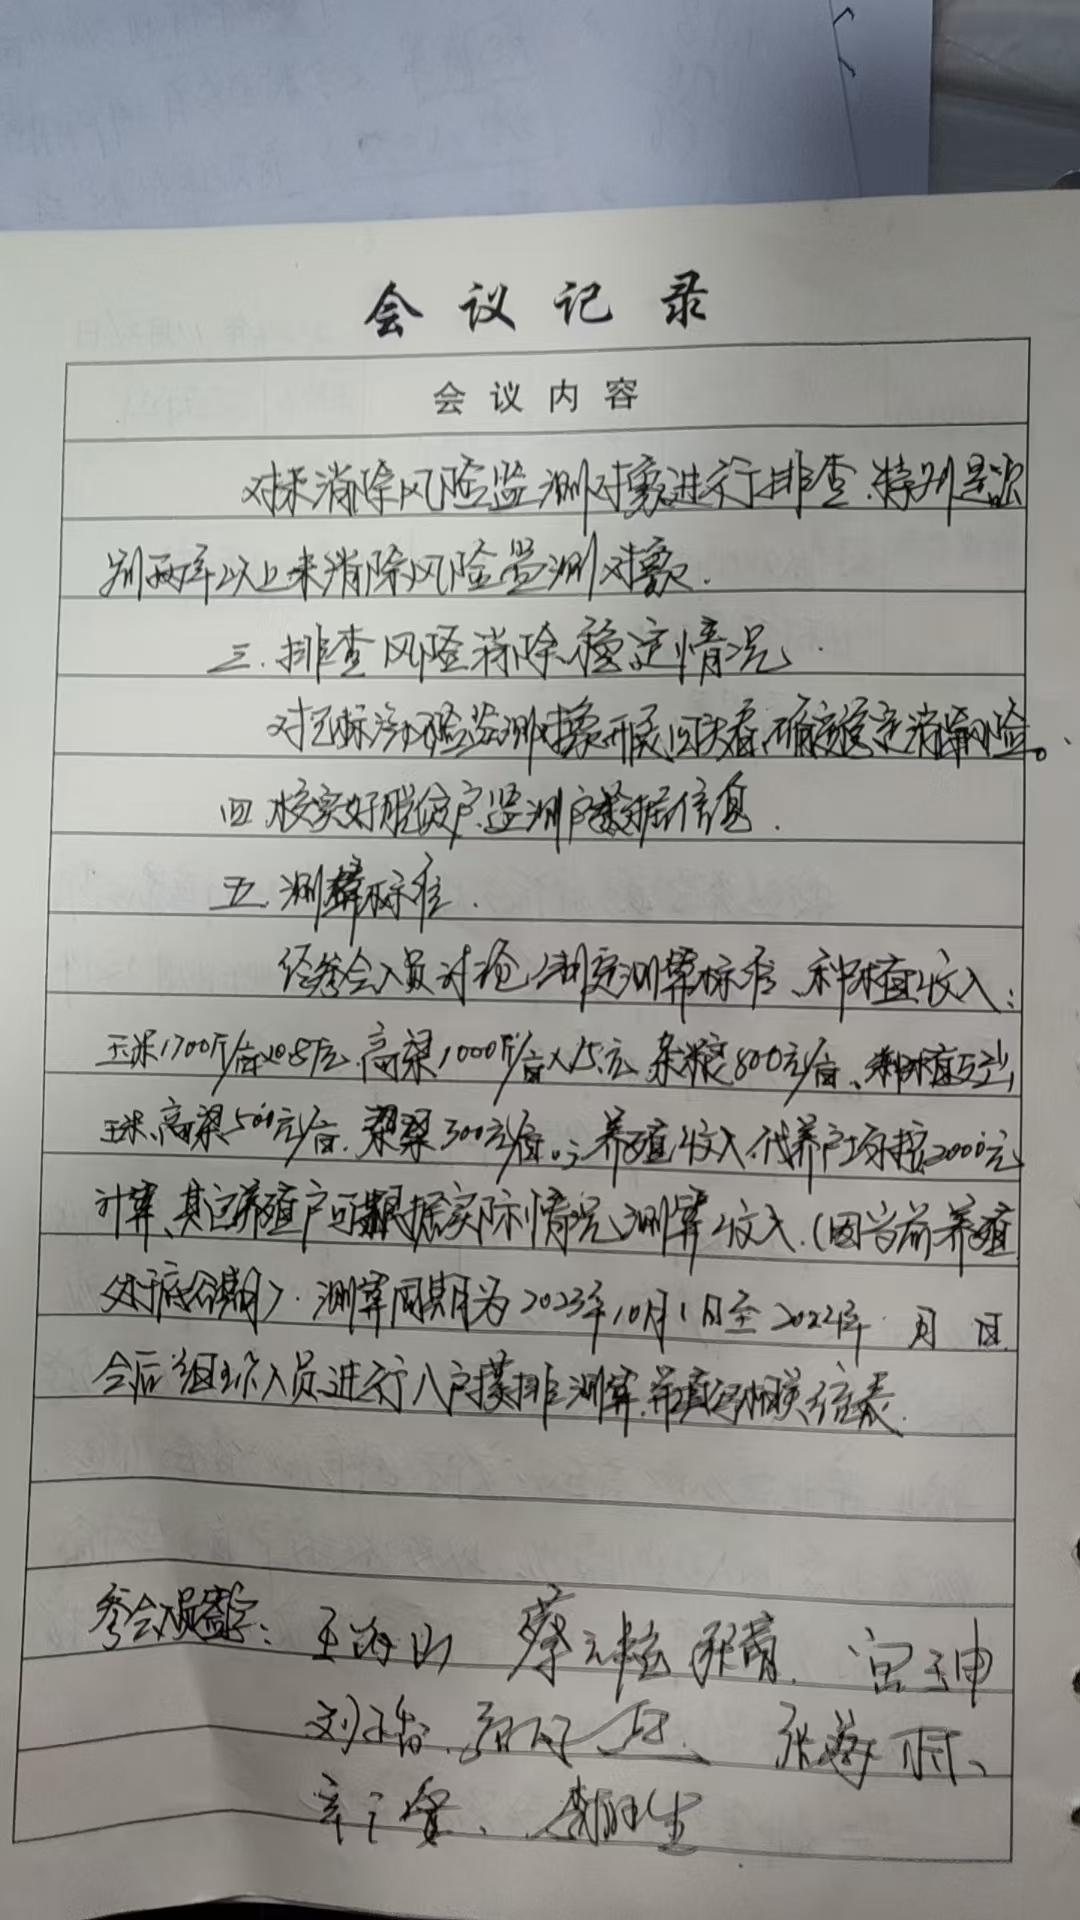 会议记录
会议内容
对未消除风险监测对象进行排查、特别是识
别两年以上未消除风险监测对象.
三.排查风险消除稳定情况
对已标注风险监测对象开展"回头看",确定稳定消除风险。
四.核实好脱贫户、监测户数据信息.
五.测算标准.
经参会人员讨论,制定测算标准、种植收入:
玉米1700斤/亩×0.8元、高粱1000斤/亩×1.5元、杂粮800元/亩、种植支出,
玉米、高粱500元/亩、300元/亩。;养殖收入、代养户均按2000元
计算、其它养殖户可根据实际情况测算收入.(因当前养殖
处于底谷期).测算周期为2023年10月1日至2024年 月 日
会后人员进行入户摸排测算,并填写相关信表.
参会人员签字:
王海山 蔡 张青. 宫玉坤
刘 张海
李